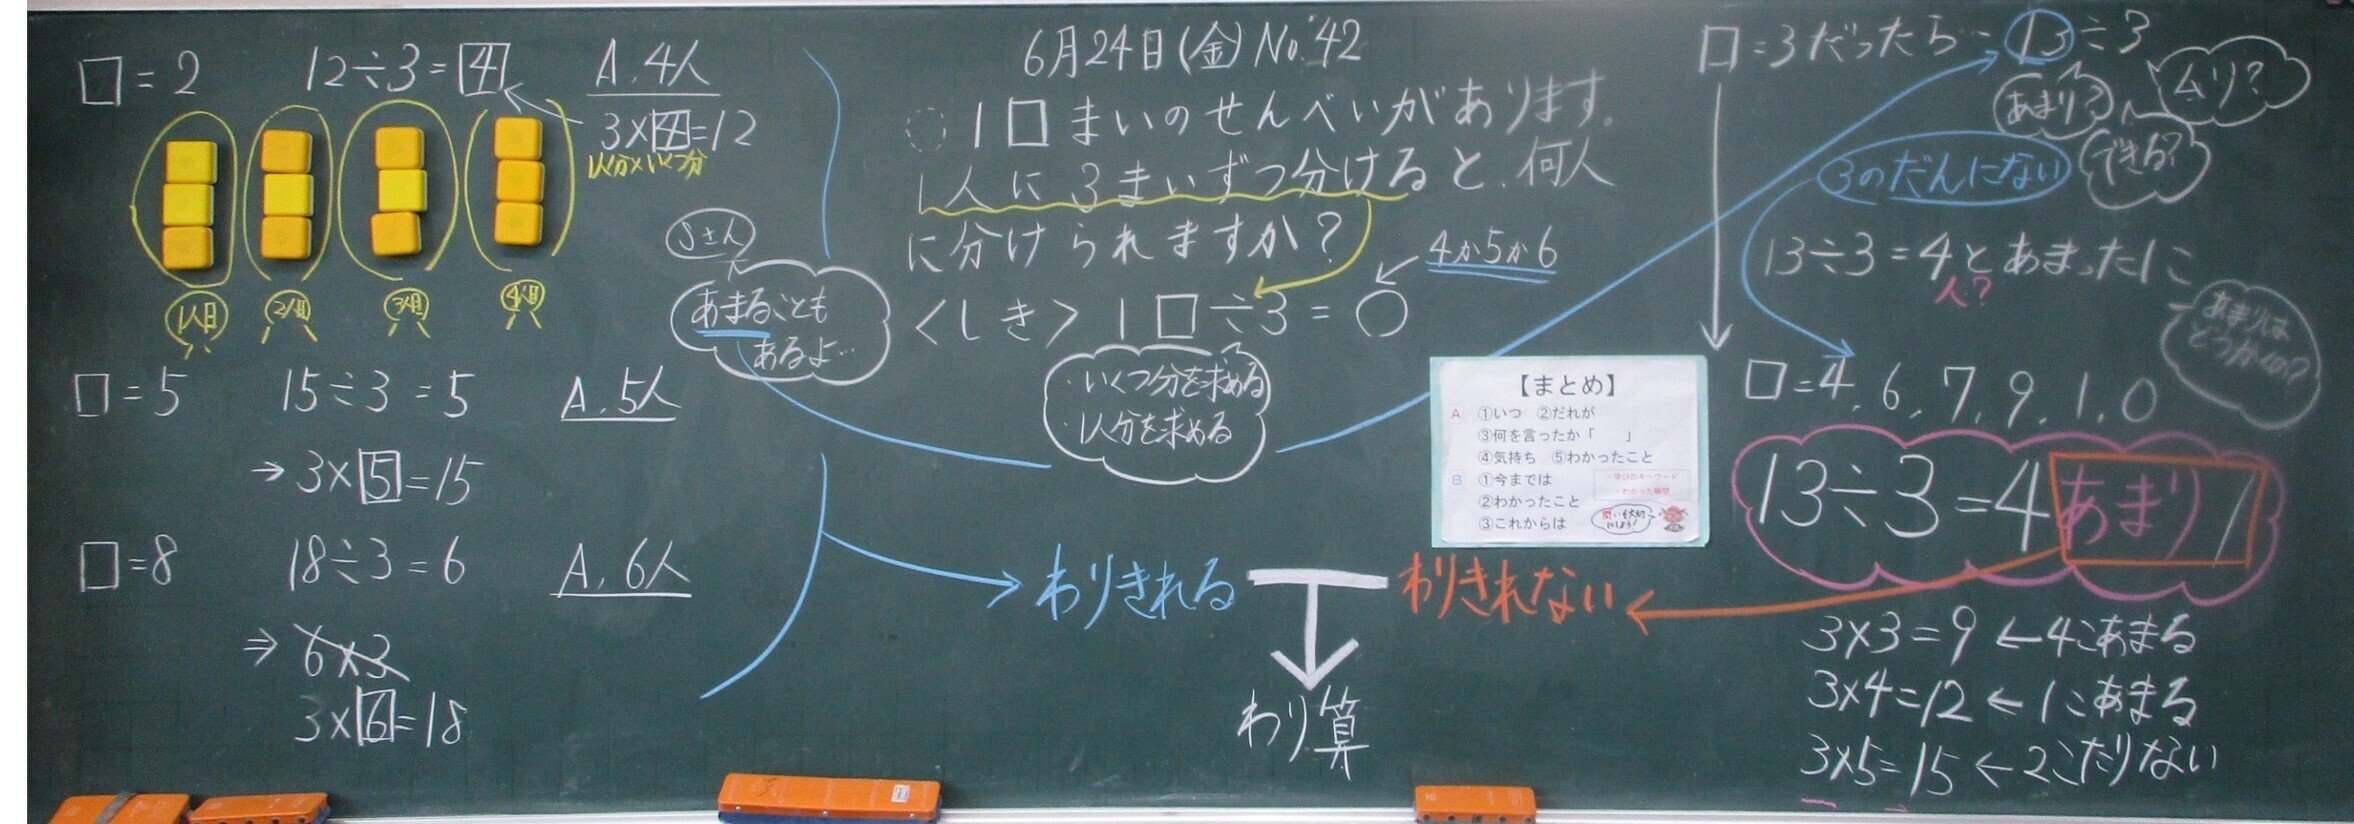 □=2 12÷3=4 A.4人
3×4=12
1人分×いくつ分
1人目 2人目 3人目 4人目
□=5 15÷3=5 A.5人
→3×5=15
□=8 18÷3=6 A.6人
⇒6×3
3×6=18
6月24日(金)No.42
1□まいのせんべいがあります。
1人に3まいずつ分けると、何人
に分けられますか?
4か5か6
<しき>1□÷3=○
Sさん
あまることも
あるよ…
・いくつ分を求める
・1人分を求める
【まとめ】
A ①いつ ②だれが
③何を言ったか「 」
④気持ち ⑤わかったこと
B ①今までは
②わかったこと
③これからは
・学びのキーワード
・わかった瞬間
わりきれる
わりきれない
わり算
□=3だったら…13÷3
あまり?
ムリ?
できる?
3のだんにない
13÷3=4とあまった1こ
人?
あまりは
どうかくの?
□=4,6,7,9,1,0
13÷3=4あまり1
3×3=9←4こあまる
3×4=12←1こあまる
3×5=15←2こたりない